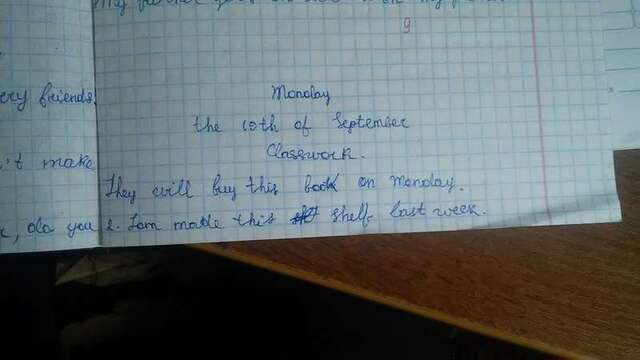 ery friends
't make
, do you
9
Monday
the 10th of September
Classwork.
They will buy this book on Monday.
2. Tom made this shelf last week.